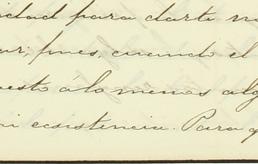 idad para darte no
ar; pues, cuando el
uesto á lo menos alg
mi ecsistencia. Para q